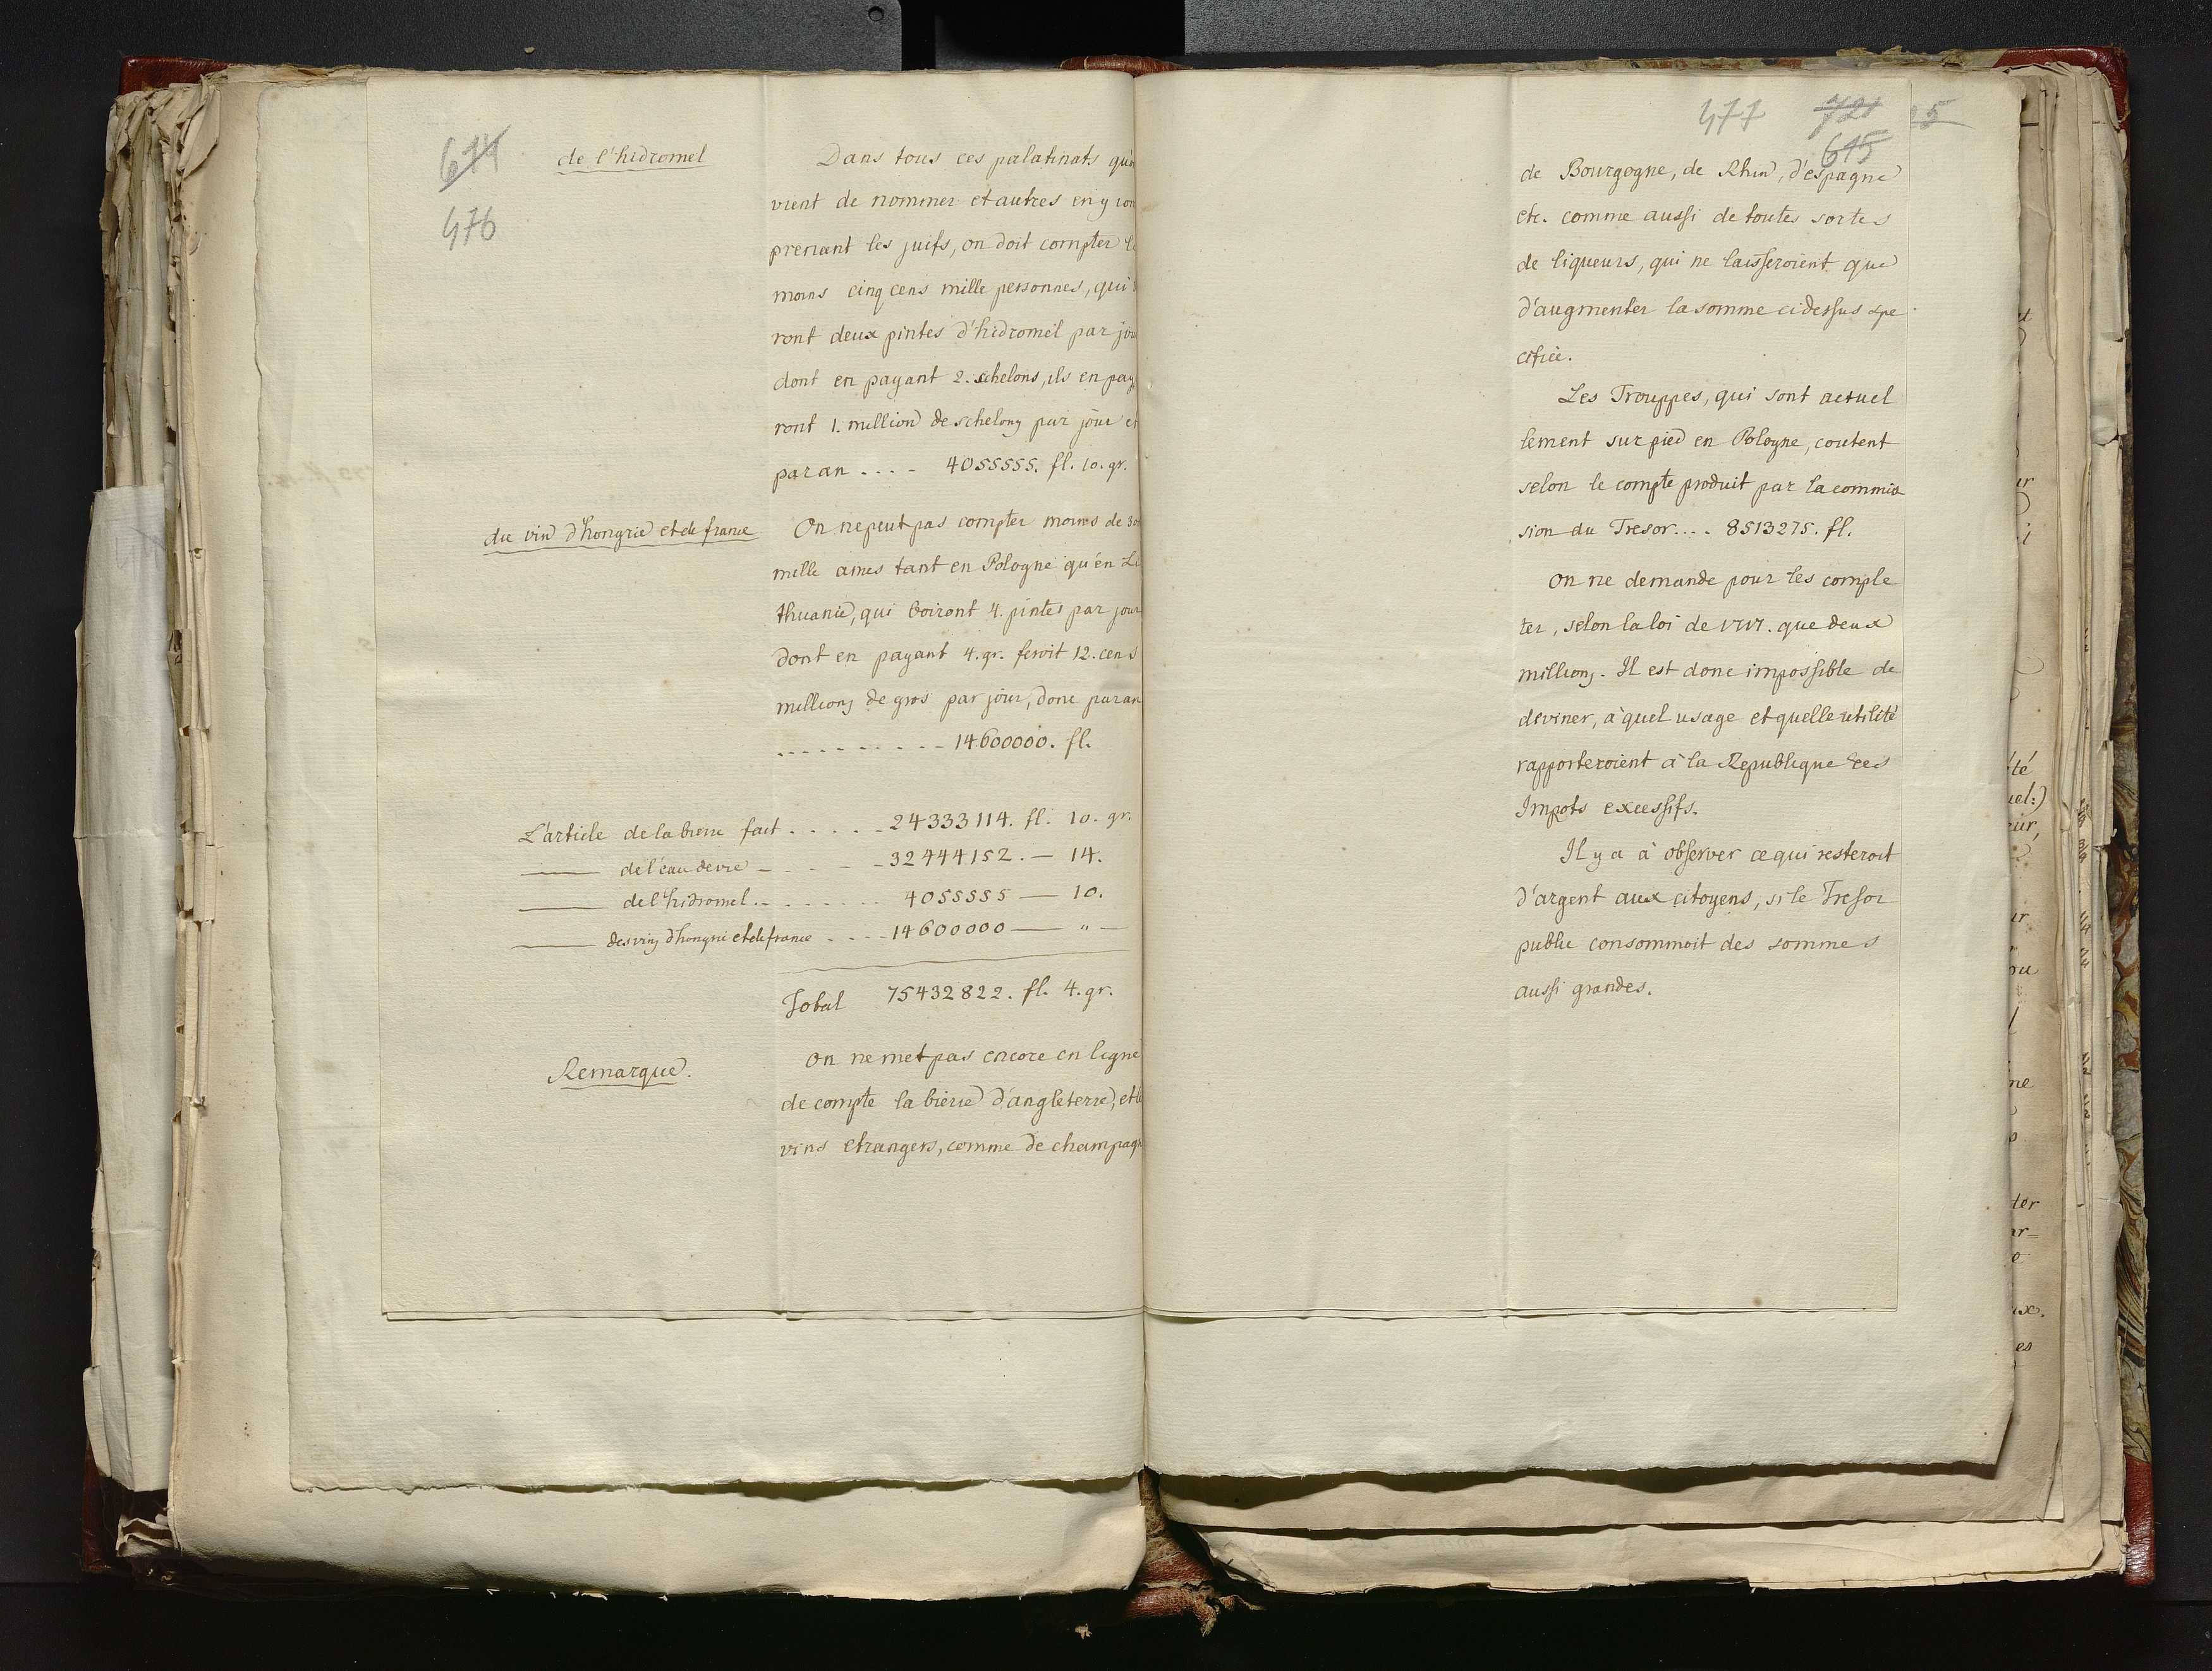 614
476
de l'hidromel
Dans tous ces palatinats qu'on
vient de nommer et autres en y com
prenant les juifs, on doit compter
moins cinq cens mille personnes, qui
ront deux pintes d'hidromel par jour
dont en payant 2. schelons, ils en paye
ront 1. million de schelons par jour et
par an .... 4055555. fl. 10. gr.
du vin d'hongrie et de france
On ne peut pas compter moins de 300
mille ames tant en Pologne qu'en Li
thuanie, qui boiront 4. pintes par jour
dont en payant 4. gr. feroit 12. cens
millions de gros par jour, donc par an
.......... 14600000. fl.
L'article de la bierre fait ..... 24333114. fl. 10. gr.
—— de l'eau de vie - - - - 32444152. — 14.
—— de l'hidromel ........ 4055555 — 10.
—— des vins d'hongrie et de france .... 14600000 — " —
Total 75432822. fl. 4. gr.
Remarque.
On ne met pas encore en ligne
de compte la bierre d'angleterre, et le
vins etrangers, comme de champagn
477 721 25
615
de Bourgogne, de Rhin, d'espagne
etc. comme aussi de toutes sortes
de liqueurs, qui ne laisseroient que
d'augmenter la somme cidessus spe
cifiée.
Les Trouppes, qui sont actuel
lement sur pied en Pologne, coutent
selon le compte produit par la commis
sion du Tresor.... 8513275. fl.
On ne demande pour les comple
ter, selon la loi de 1717. que deux
millions. Il est donc impossible de
deviner, à quel usage et quelle utilité
rapporteroient à la Republique ces
Impots excessifs.
Il y a à observer ce qui resteroit
d'argent aux citoyens, si le Tresor
public consommoit des sommes
aussi grandes.